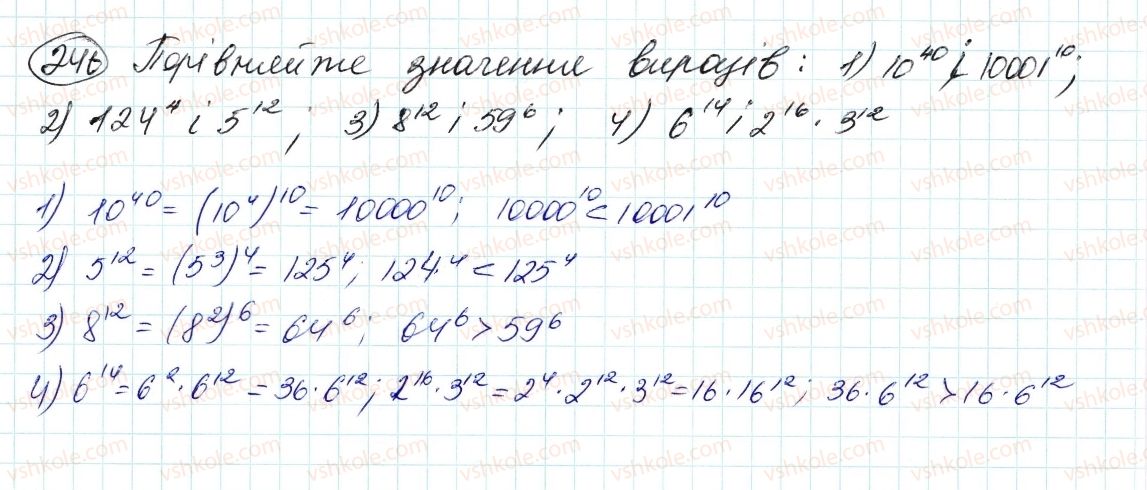 246 Порівняйте значення виразів: 1) 10⁴⁰ і 10001¹⁰;
2) 124⁴ і 5¹²; 3) 8¹² і 59⁶; 4) 6¹⁴ і 2¹⁶ · 3¹²
1) 10⁴⁰ = (10⁴)¹⁰ = 10000¹⁰; 10000¹⁰ < 10001¹⁰
2) 5¹² = (5³)⁴ = 125⁴; 124⁴ < 125⁴
3) 8¹² = (8²)⁶ = 64⁶; 64⁶ > 59⁶
4) 6¹⁴ = 6² · 6¹² = 36 · 6¹²; 2¹⁶ · 3¹² = 2⁴ · 2¹² · 3¹² = 16 · 16¹²; 36 · 6¹² > 16 · 6¹²